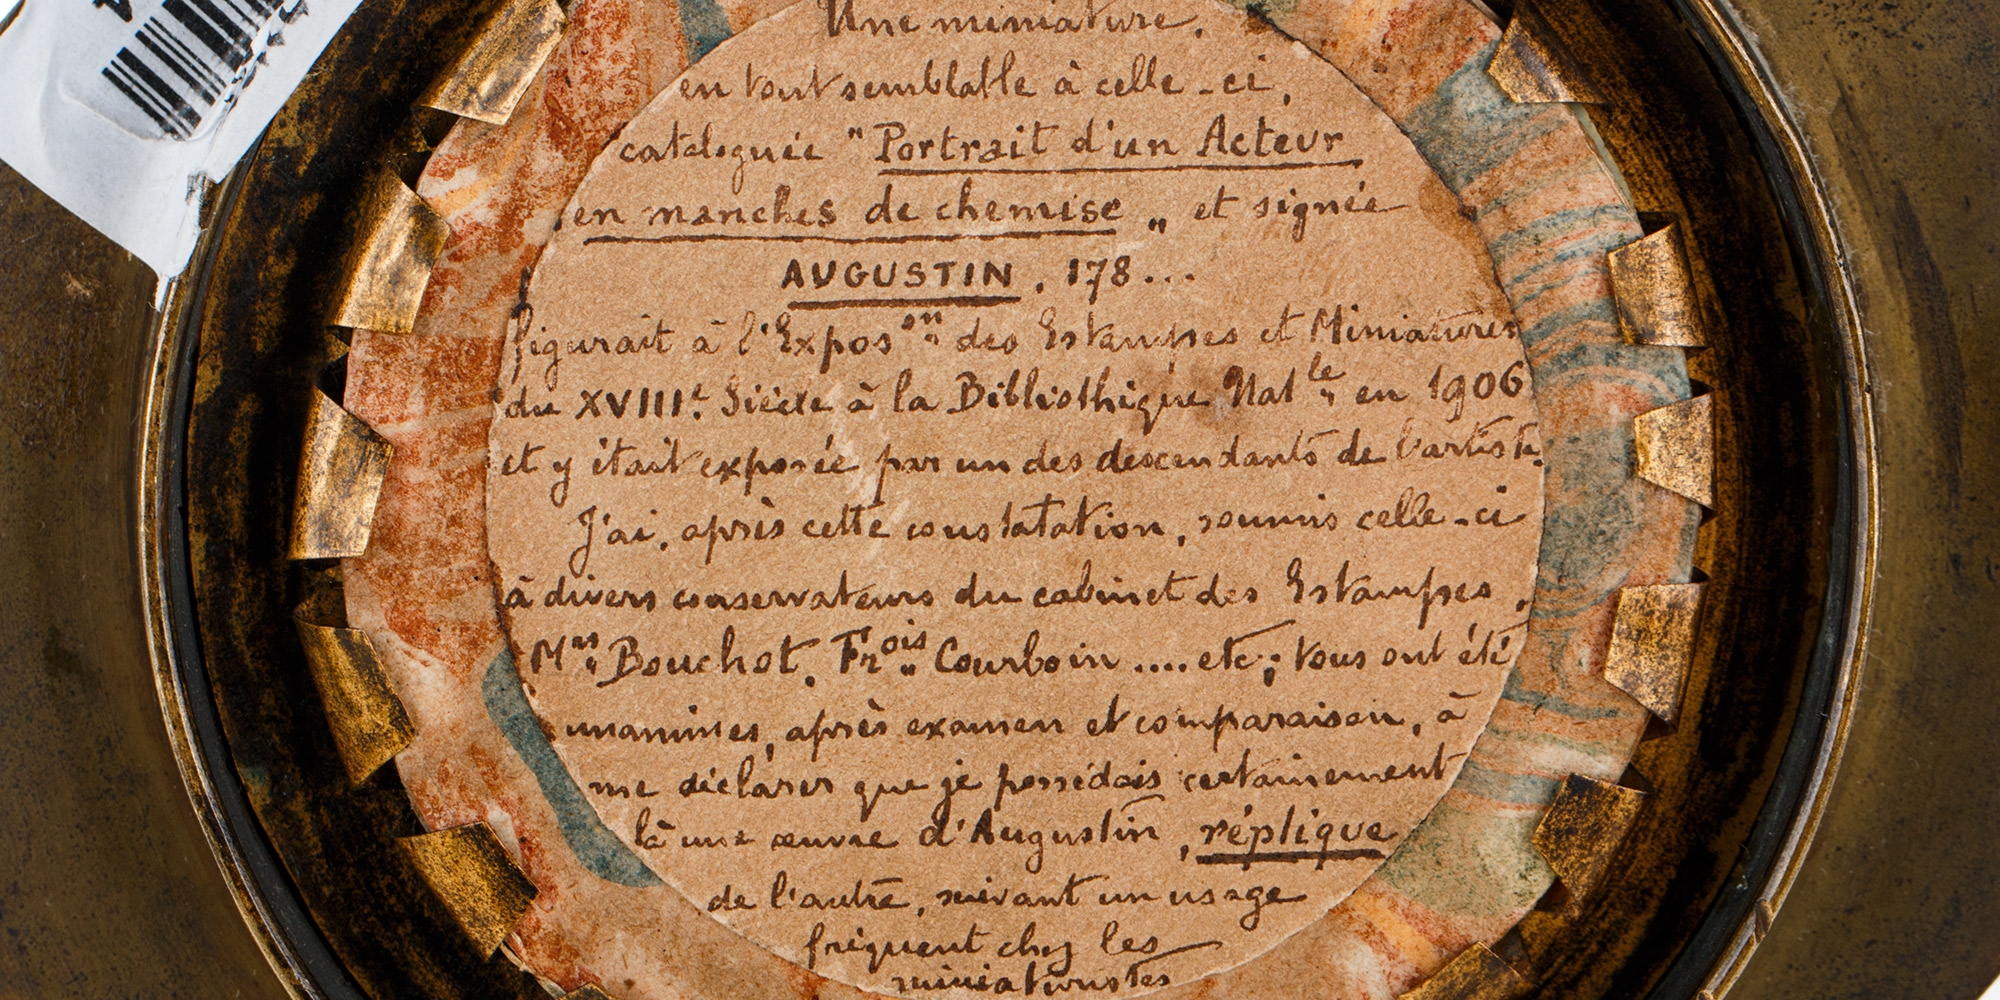 Une miniature,
en tout semblable à celle-ci,
cataloguée "Portrait d'un Acteur
en manches de chemise „ et signée
AUGUSTIN, 178...
figurait à l'Expos^on des Estampes et Miniatures
du XVIII^e Siècle à la Bibliothèque Nat^le en 1906
et y était exposée par un des descendants de l'artiste.
J'ai, après cette constatation, soumis celle-ci
à divers conservateurs du cabinet des Estampes,
M^rs Bouchot, Fr^ois Courboin .... etc; tous ont été
unanimes, après examen et comparaison, à
me déclarer que je possédais certainement
là une œuvre d'Augustin, réplique
de l'autre, suivant un usage
fréquent chez les
miniaturistes